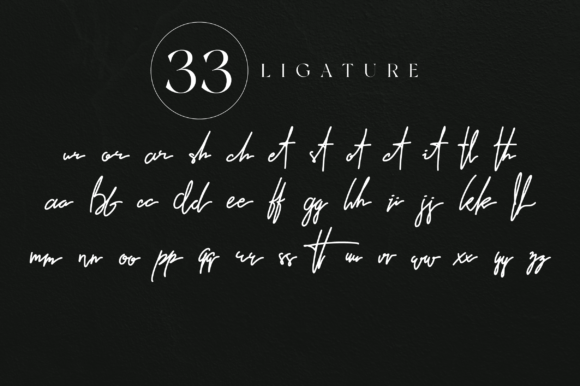 33 LIGATURE
ur or ar sh ch et st ot ct it tl th
aa bb cc dd ee ff gg hh ii jj kk ll
mm nn oo pp qq rr ss tt uu vv ww xx yy zz